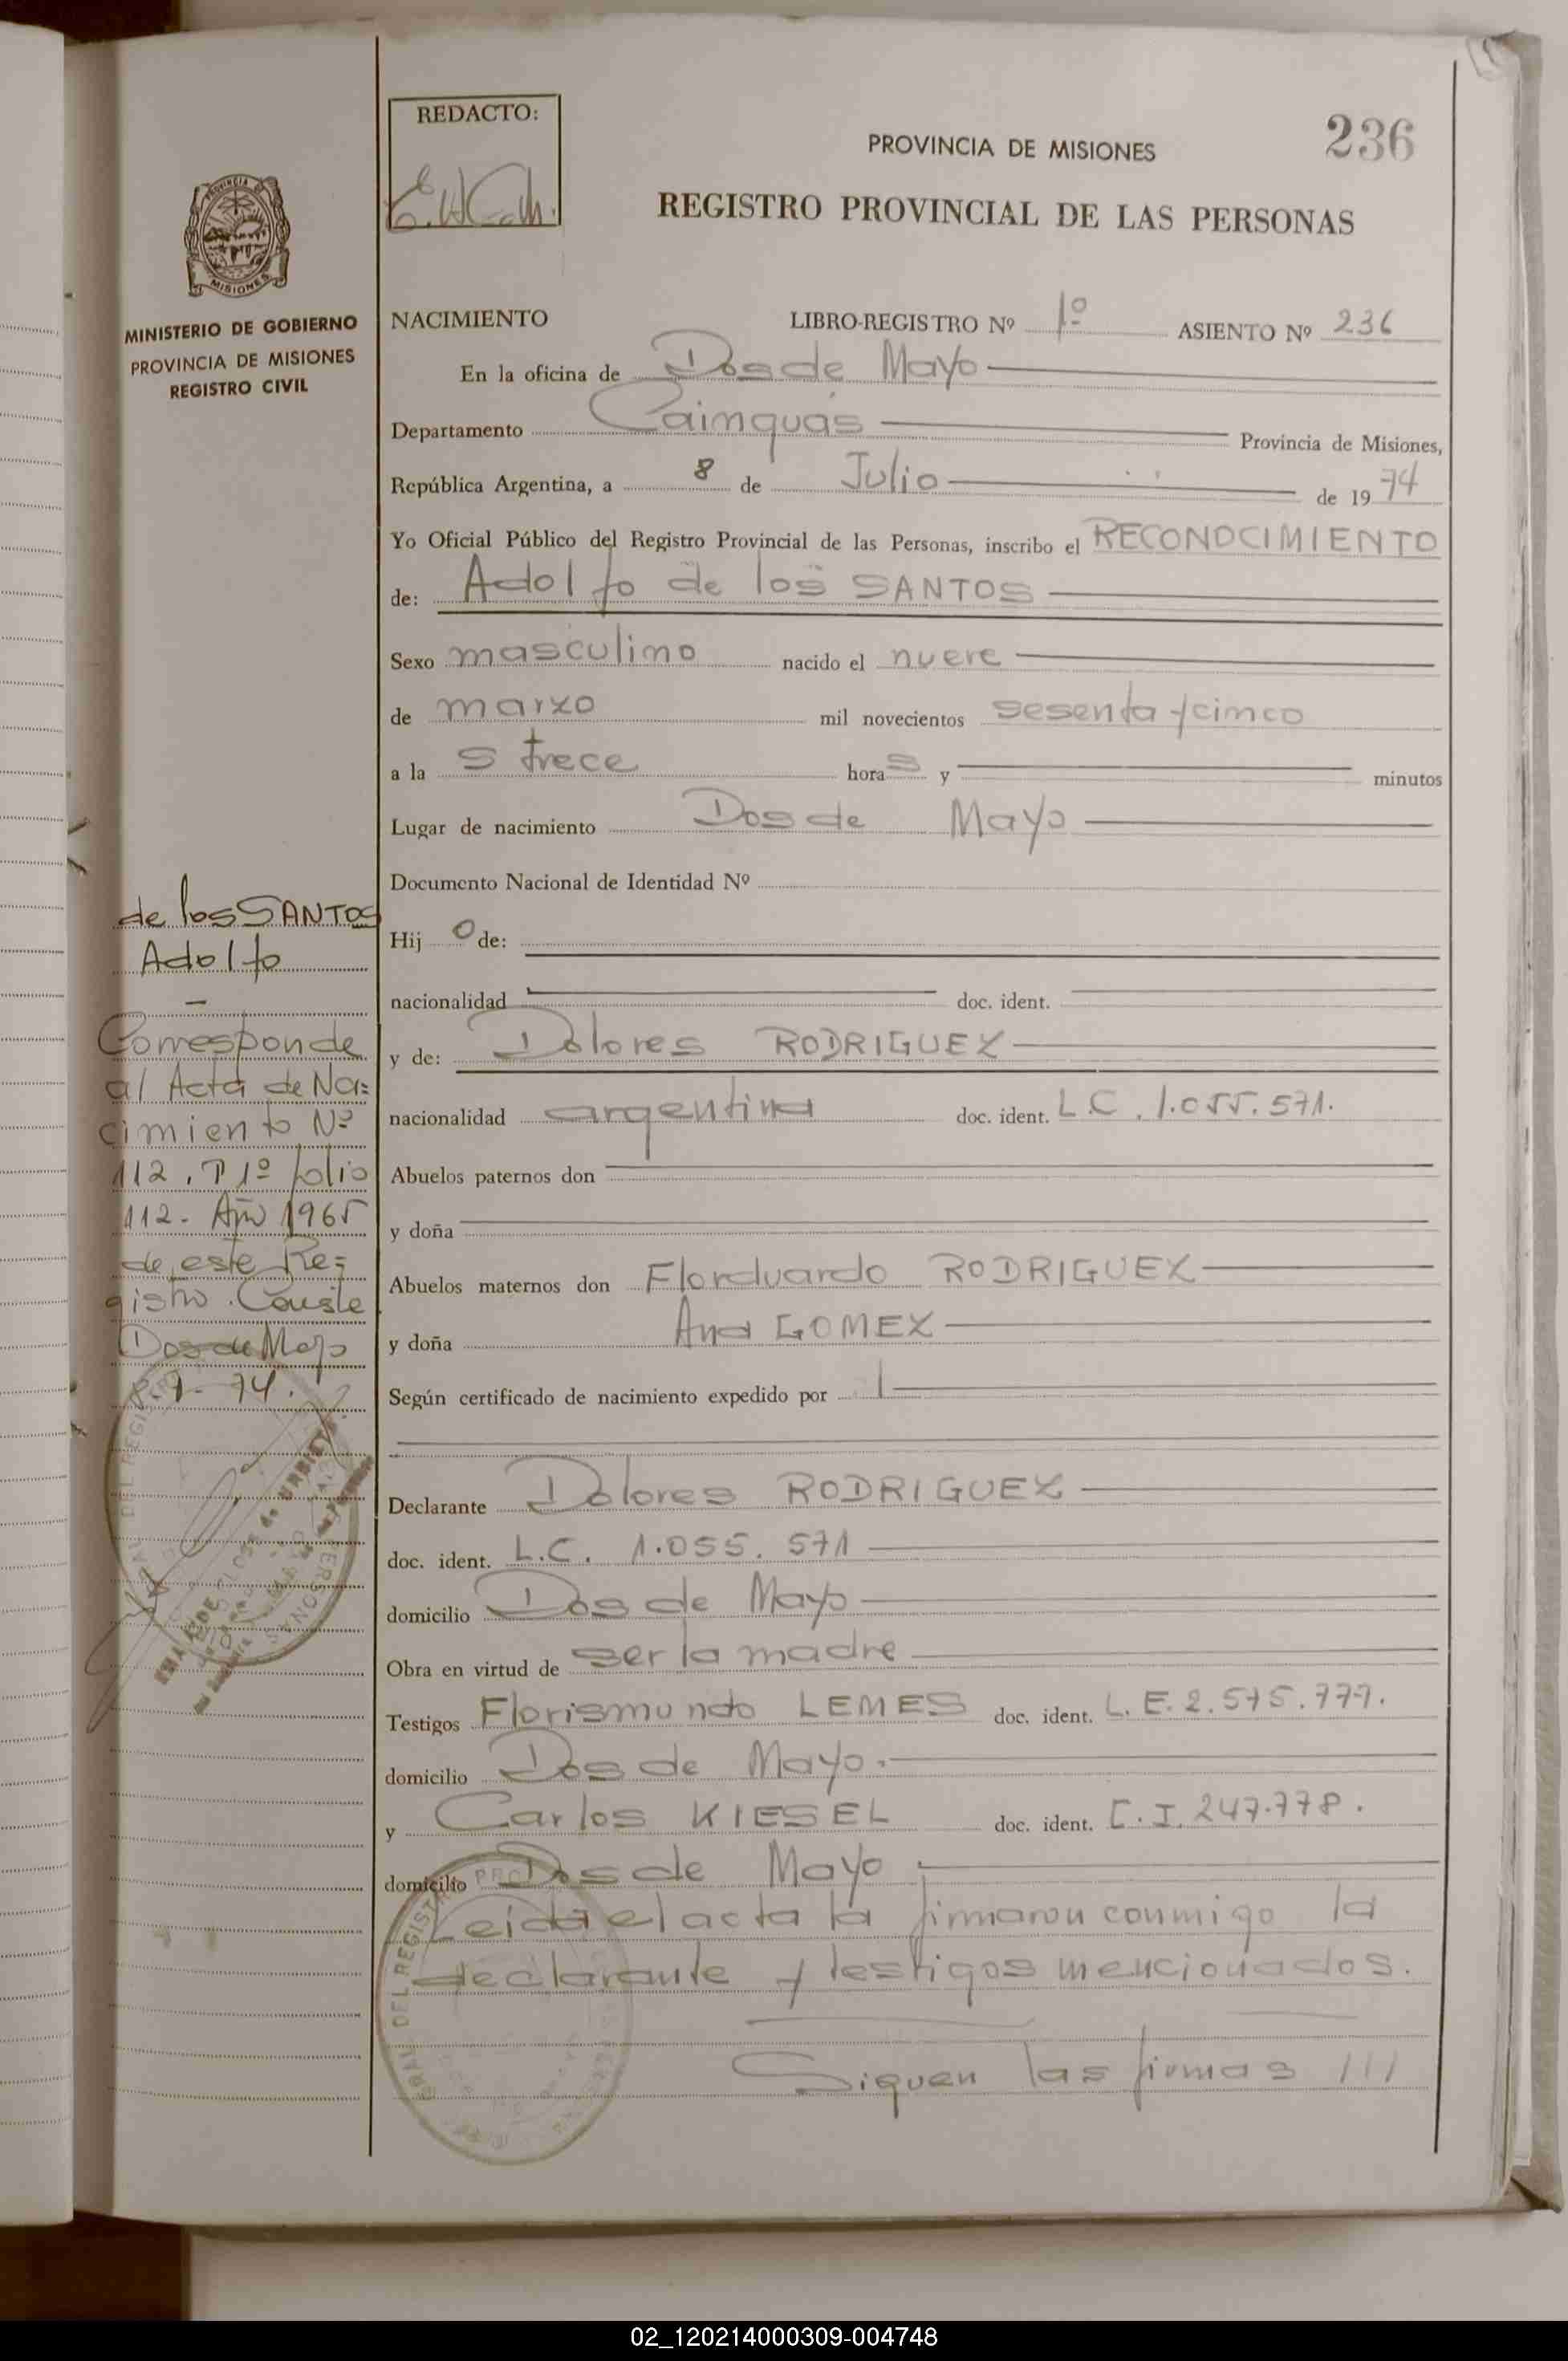 REDACTO:
236
PROVINCIA DE MISIONES
REGISTRO PROVINCIAL DE LAS PERSONAS
MISIONES
MINISTERIO DE GOBIERNO
PROVINCIA DE MISIONES
REGISTRO CIVIL
NACIMIENTO LIBRO-REGISTRO Nº 1º ASIENTO Nº 236
En la oficina de Dos de Mayo
Departamento Cainguás Provincia de Misiones,
República Argentina, a 8 de Julio de 1974
Yo Oficial Público del Registro Provincial de las Personas, inscribo el RECONOCIMIENTO
de: Adolfo de los SANTOS
Sexo masculino nacido el nueve
de marzo mil novecientos sesenta y cinco
a la s trece hora s y minutos
Lugar de nacimiento Dos de Mayo
Documento Nacional de Identidad Nº
Hij o de:
nacionalidad doc. ident.
y de: Dolores RODRIGUEZ
nacionalidad argentina doc. ident. L.C. 1.055.571.
Abuelos paternos don
y doña
Abuelos maternos don Florduardo RODRIGUEZ
y doña Ana GOMEZ
Según certificado de nacimiento expedido por
Declarante Dolores RODRIGUEZ
doc. ident. L.C. 1.055.571
domicilio Dos de Mayo
Obra en virtud de ser la madre
Testigos Florismundo LEMES doc. ident. L.E. 2.575.777.
domicilio Dos de Mayo.
y Carlos KIESEL doc. ident. C.I. 247.778.
domicilio Dos de Mayo
Leida el acta la firmaron conmigo la
declarante y testigos mencionados.
Siguen las firmas ///
de los SANTOS
Adolfo
Corresponde
al Acta de Na=
cimiento Nº
112, T 1º folio
112- Año 1965
de este Re=
gistro. Conste
Dos de Mayo
8-7-74.
02_120214000309-004748